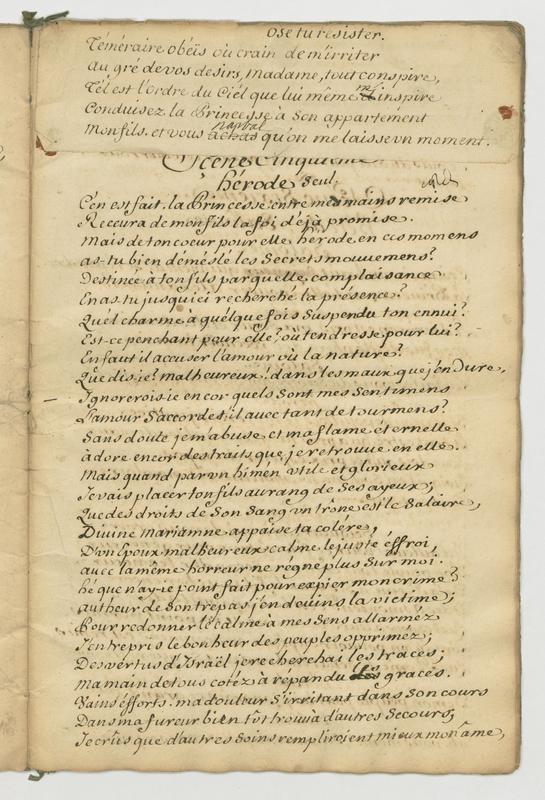 Ose tu resister.
Téméraire obéïs où crain de m'irriter
Au gré de vos desirs, madame, tout conspire,
Tel est l'Ordre du Ciel que lui même m'inspire
Conduisez la Princesse à Son appartement
Mon fils. et vous achas qu'on me laisse un moment.
Scene Cinquieme
hérode Seul,
C'en est fait. la Princesse entre mes mains remise
Recevra de mon fils la foi déjà promise.
Mais de ton coeur pour elle, hérode, en ces momens
as-tu bien démêlé les Secrets mouvemens?
Destinée à ton fils par quelle complaisance
En as-tu jusqu'ici recherché la présence?
Quel charme à quelque fois Suspendu ton ennui?
Est-ce penchant pour elle? où tendresse pour lui?
En faut il accuser l'amour où la nature?
Que dis-je? malheureux! dans les maux que j'endure,
Ignorerois-ie encor quels Sont mes Sentimens
L'amour S'accorde t'il avec tant de tourmens?
Sans doute je m'abuse et ma flame éternelle
à dore encor des traits que je retrouve en elle.
Mais quand par un himén utile et glorieux
Je vais placer ton fils au rang de Ses ayeux;
Que des droits de Son Sang un trône est le Salaire,
Divine Mariamne appaise ta colère,
D'un Epoux malheureux calme le juste éffroi,
avec la même horreur ne régne plus Sur moi.
hé que n'ay-ie point fait pour expier mon crime?
autheur de Son trépas j'en devins la victime;
Pour redonner le calme à mes Sens allarméz
J'entrepris le bonheur des peuples oppriméz;
Des vertus d'Israël je recherchai les traces;
Ma main de tous cotéz à répandu les graces.
Vains éfforts! ma douleur S'irritant dans Son cours
Dans ma fureur bien tôt trouva d'autres Secours,
Je crûs que d'autres Soins rempliroient mieux mon âme,